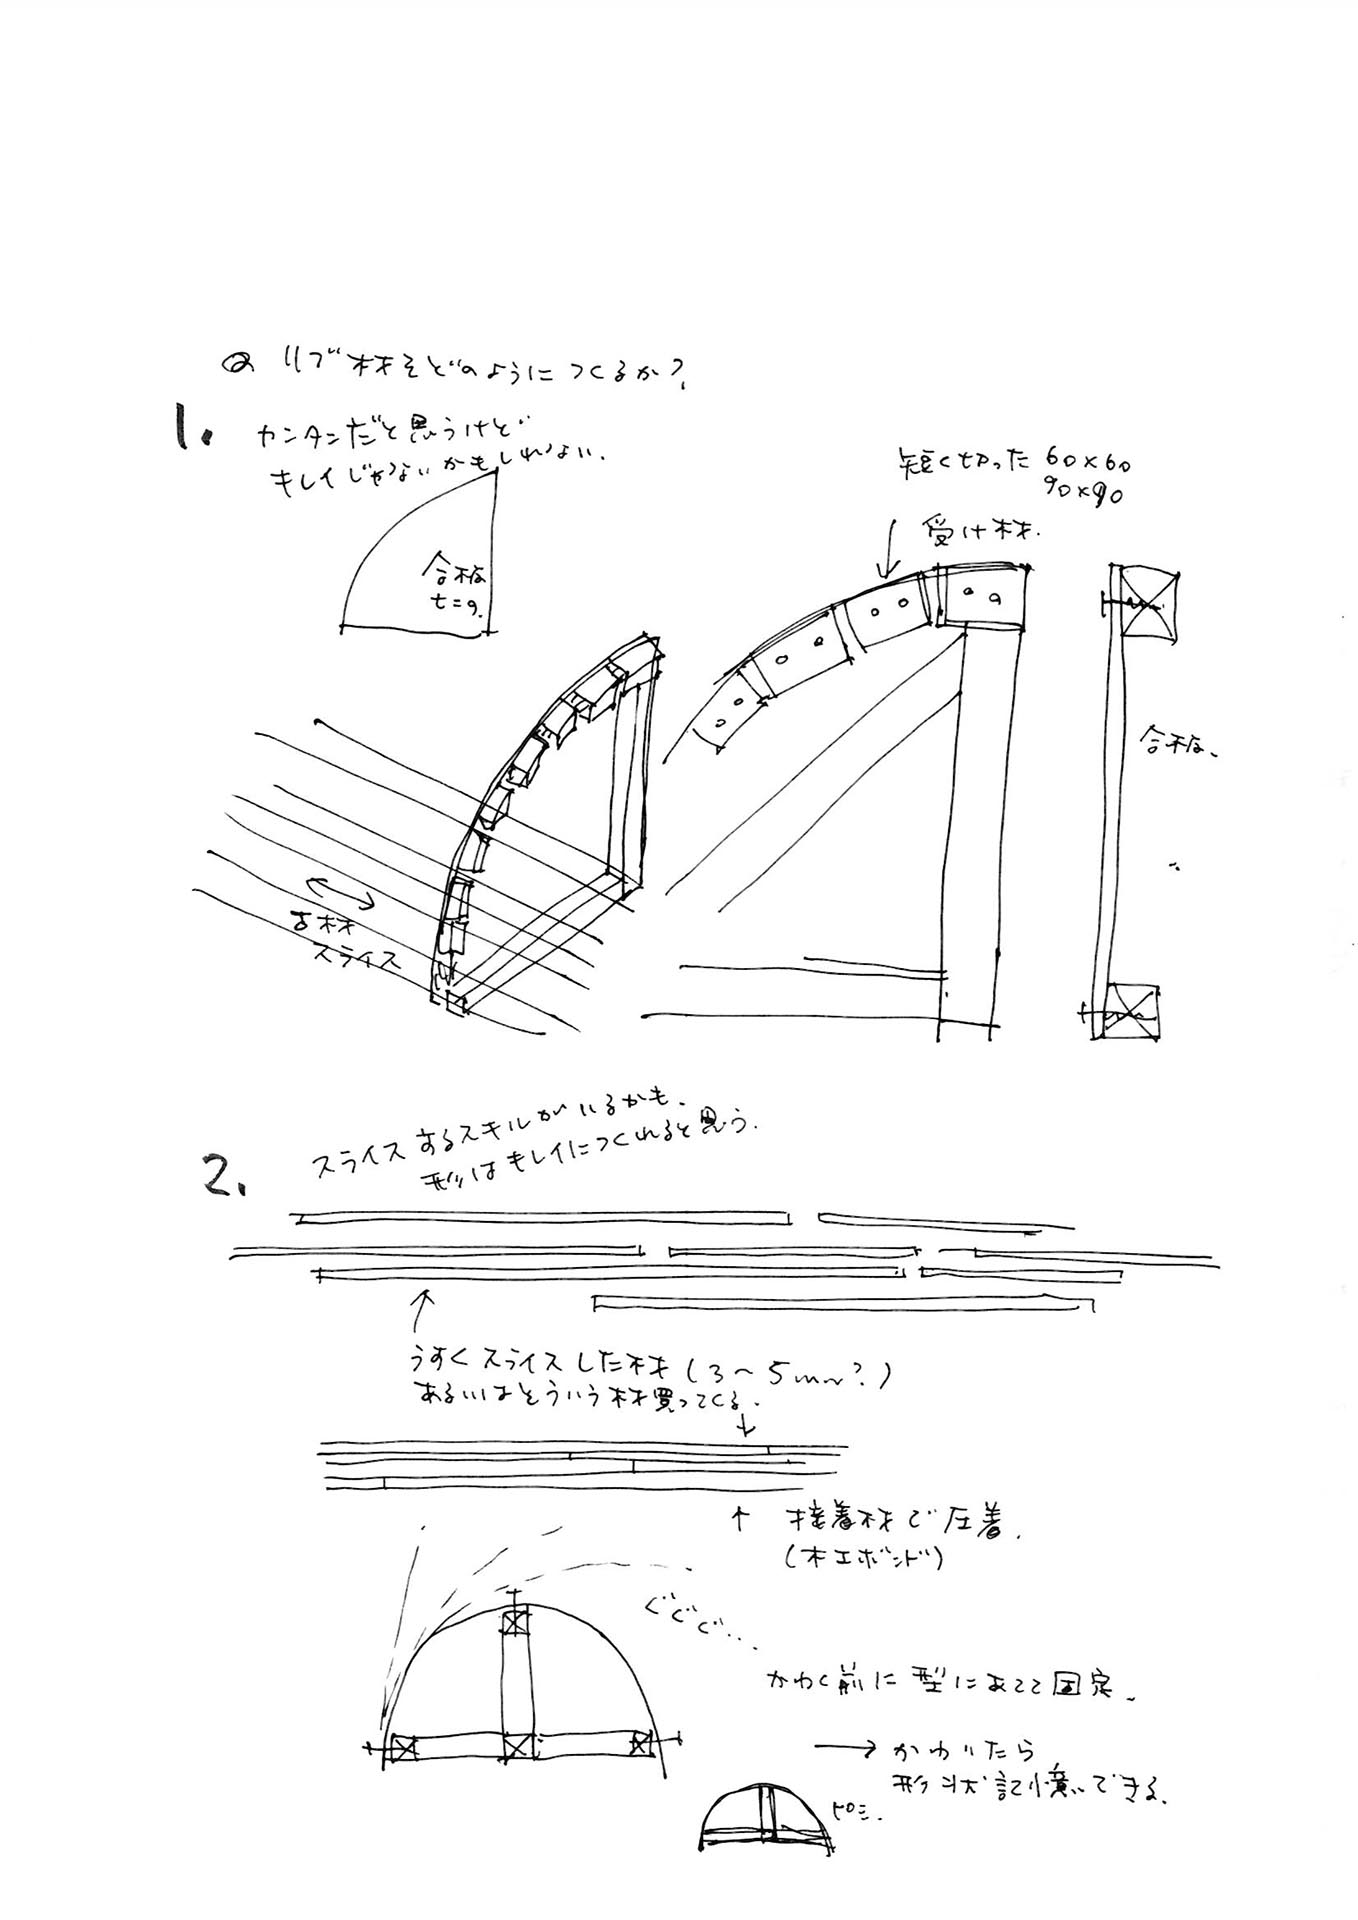 Q リブ材をどのようにつくるか?
1. カンタンだと思うけど
キレイじゃないかもしれない.
合板
t=9.
短く切った 60×60
90×90
受け材.
合板.
古材
スライス
2. スライスするスキルがいるかも.
形はキレイにつくれると思う.
うすくスライスした材 (3~5mm?)
あるいはそういう材買ってくる.
接着材で圧着.
(木工ボンド)
ぐぐぐ...
かわく前に型にあてて固定.
→ かわいたら
形状記憶できる.
ピシ.